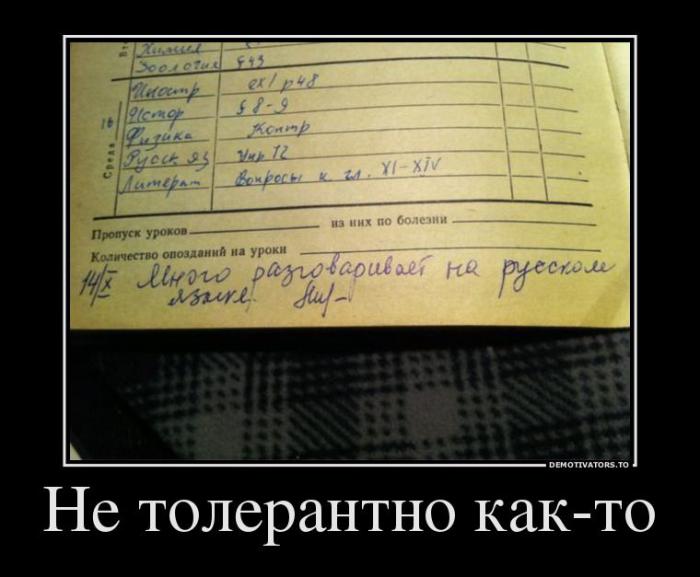 Химия
Зоология §43
Иностр ex1 p48
Истор § 8-9
Физика Контр
Русск яз Упр 12
Литерат Вопросы к гл. XI-XIV
Среда 16
Пропуск уроков из них по болезни
Количество опозданий на уроки
14/X Много разговаривает на русском
языке.
DEMOTIVATORS.TO
Не толерантно как-то